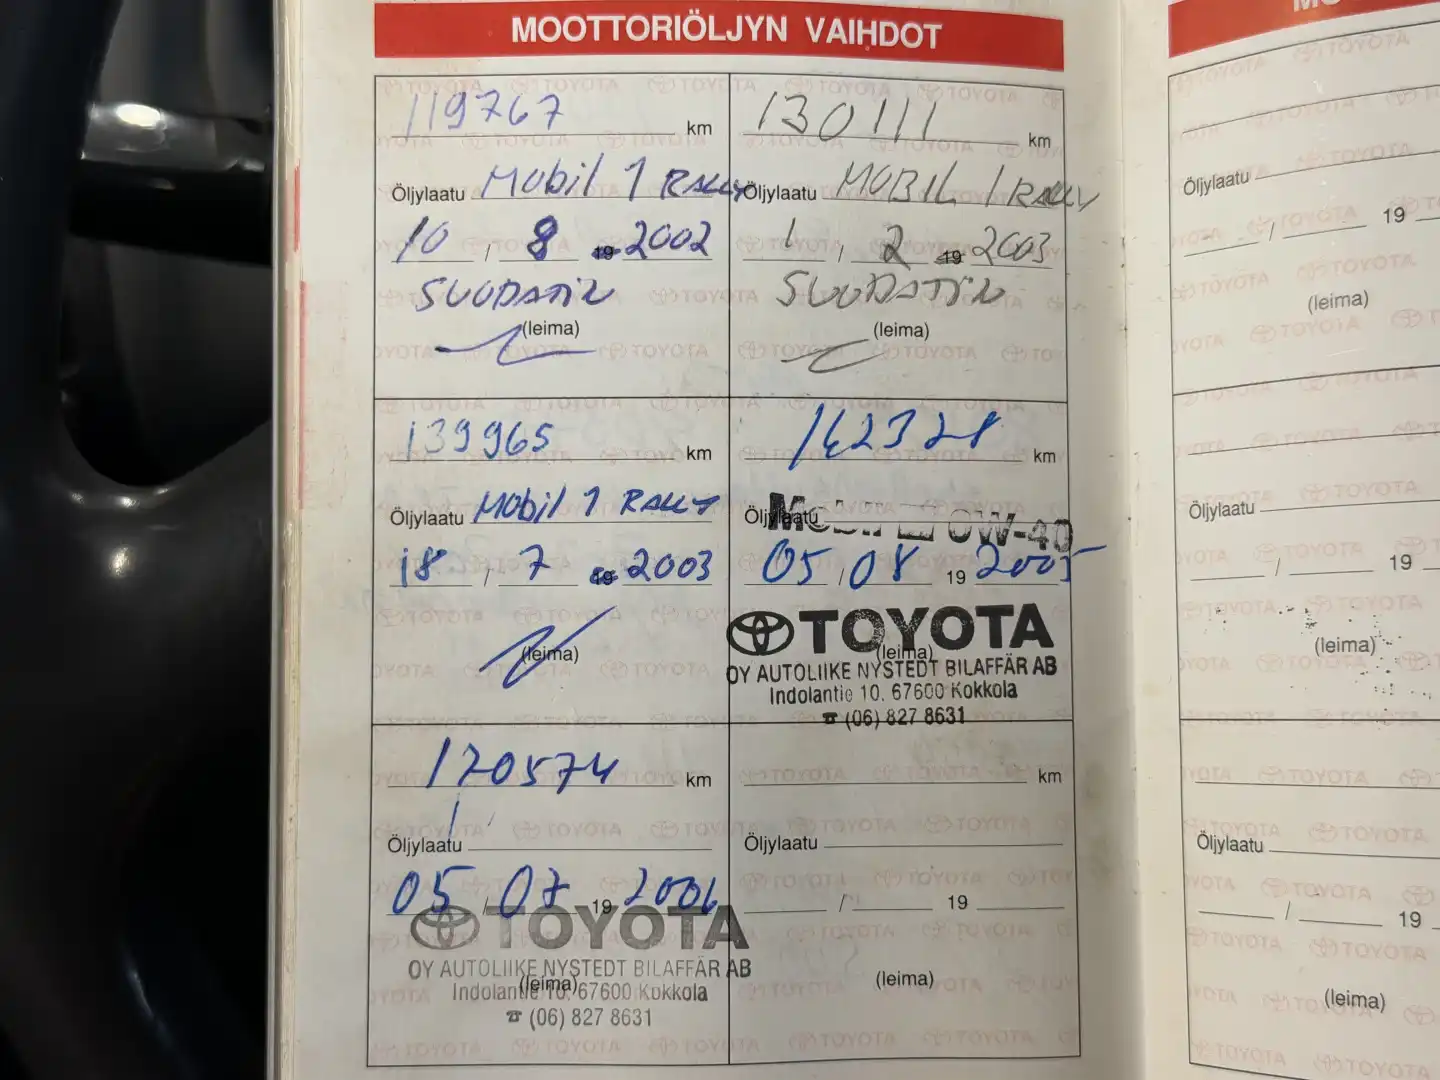 MOOTTORIÖLJYN VAIHDOT
119767 km
Öljylaatu Mobil 1 RALLY
10 / 8 19 2002
SUODATIN
(leima)
130111 km
Öljylaatu MOBIL 1 RALLY
1 / 2 19 2003
SUODATIN
(leima)
139965 km
Öljylaatu Mobil 1 RALLY
18 / 7 19 2003
(leima)
162328 km
Öljylaatu Mobil 0W-40
05 / 08 19 2005
TOYOTA
(leima)
OY AUTOLIIKE NYSTEDT BILAFFÄR AB
Indolantie 10, 67600 Kokkola
☎ (06) 827 8631
170574 km
Öljylaatu
05 / 07 19 2006
TOYOTA
OY AUTOLIIKE NYSTEDT BILAFFÄR AB
(leima)
Indolantie 10, 67600 Kokkola
☎ (06) 827 8631
km
Öljylaatu
/ 19
(leima)
Öljylaatu
/ 19
(leima)
Öljylaatu
/ 19
(leima)
Öljylaatu
/ 19
(leima)